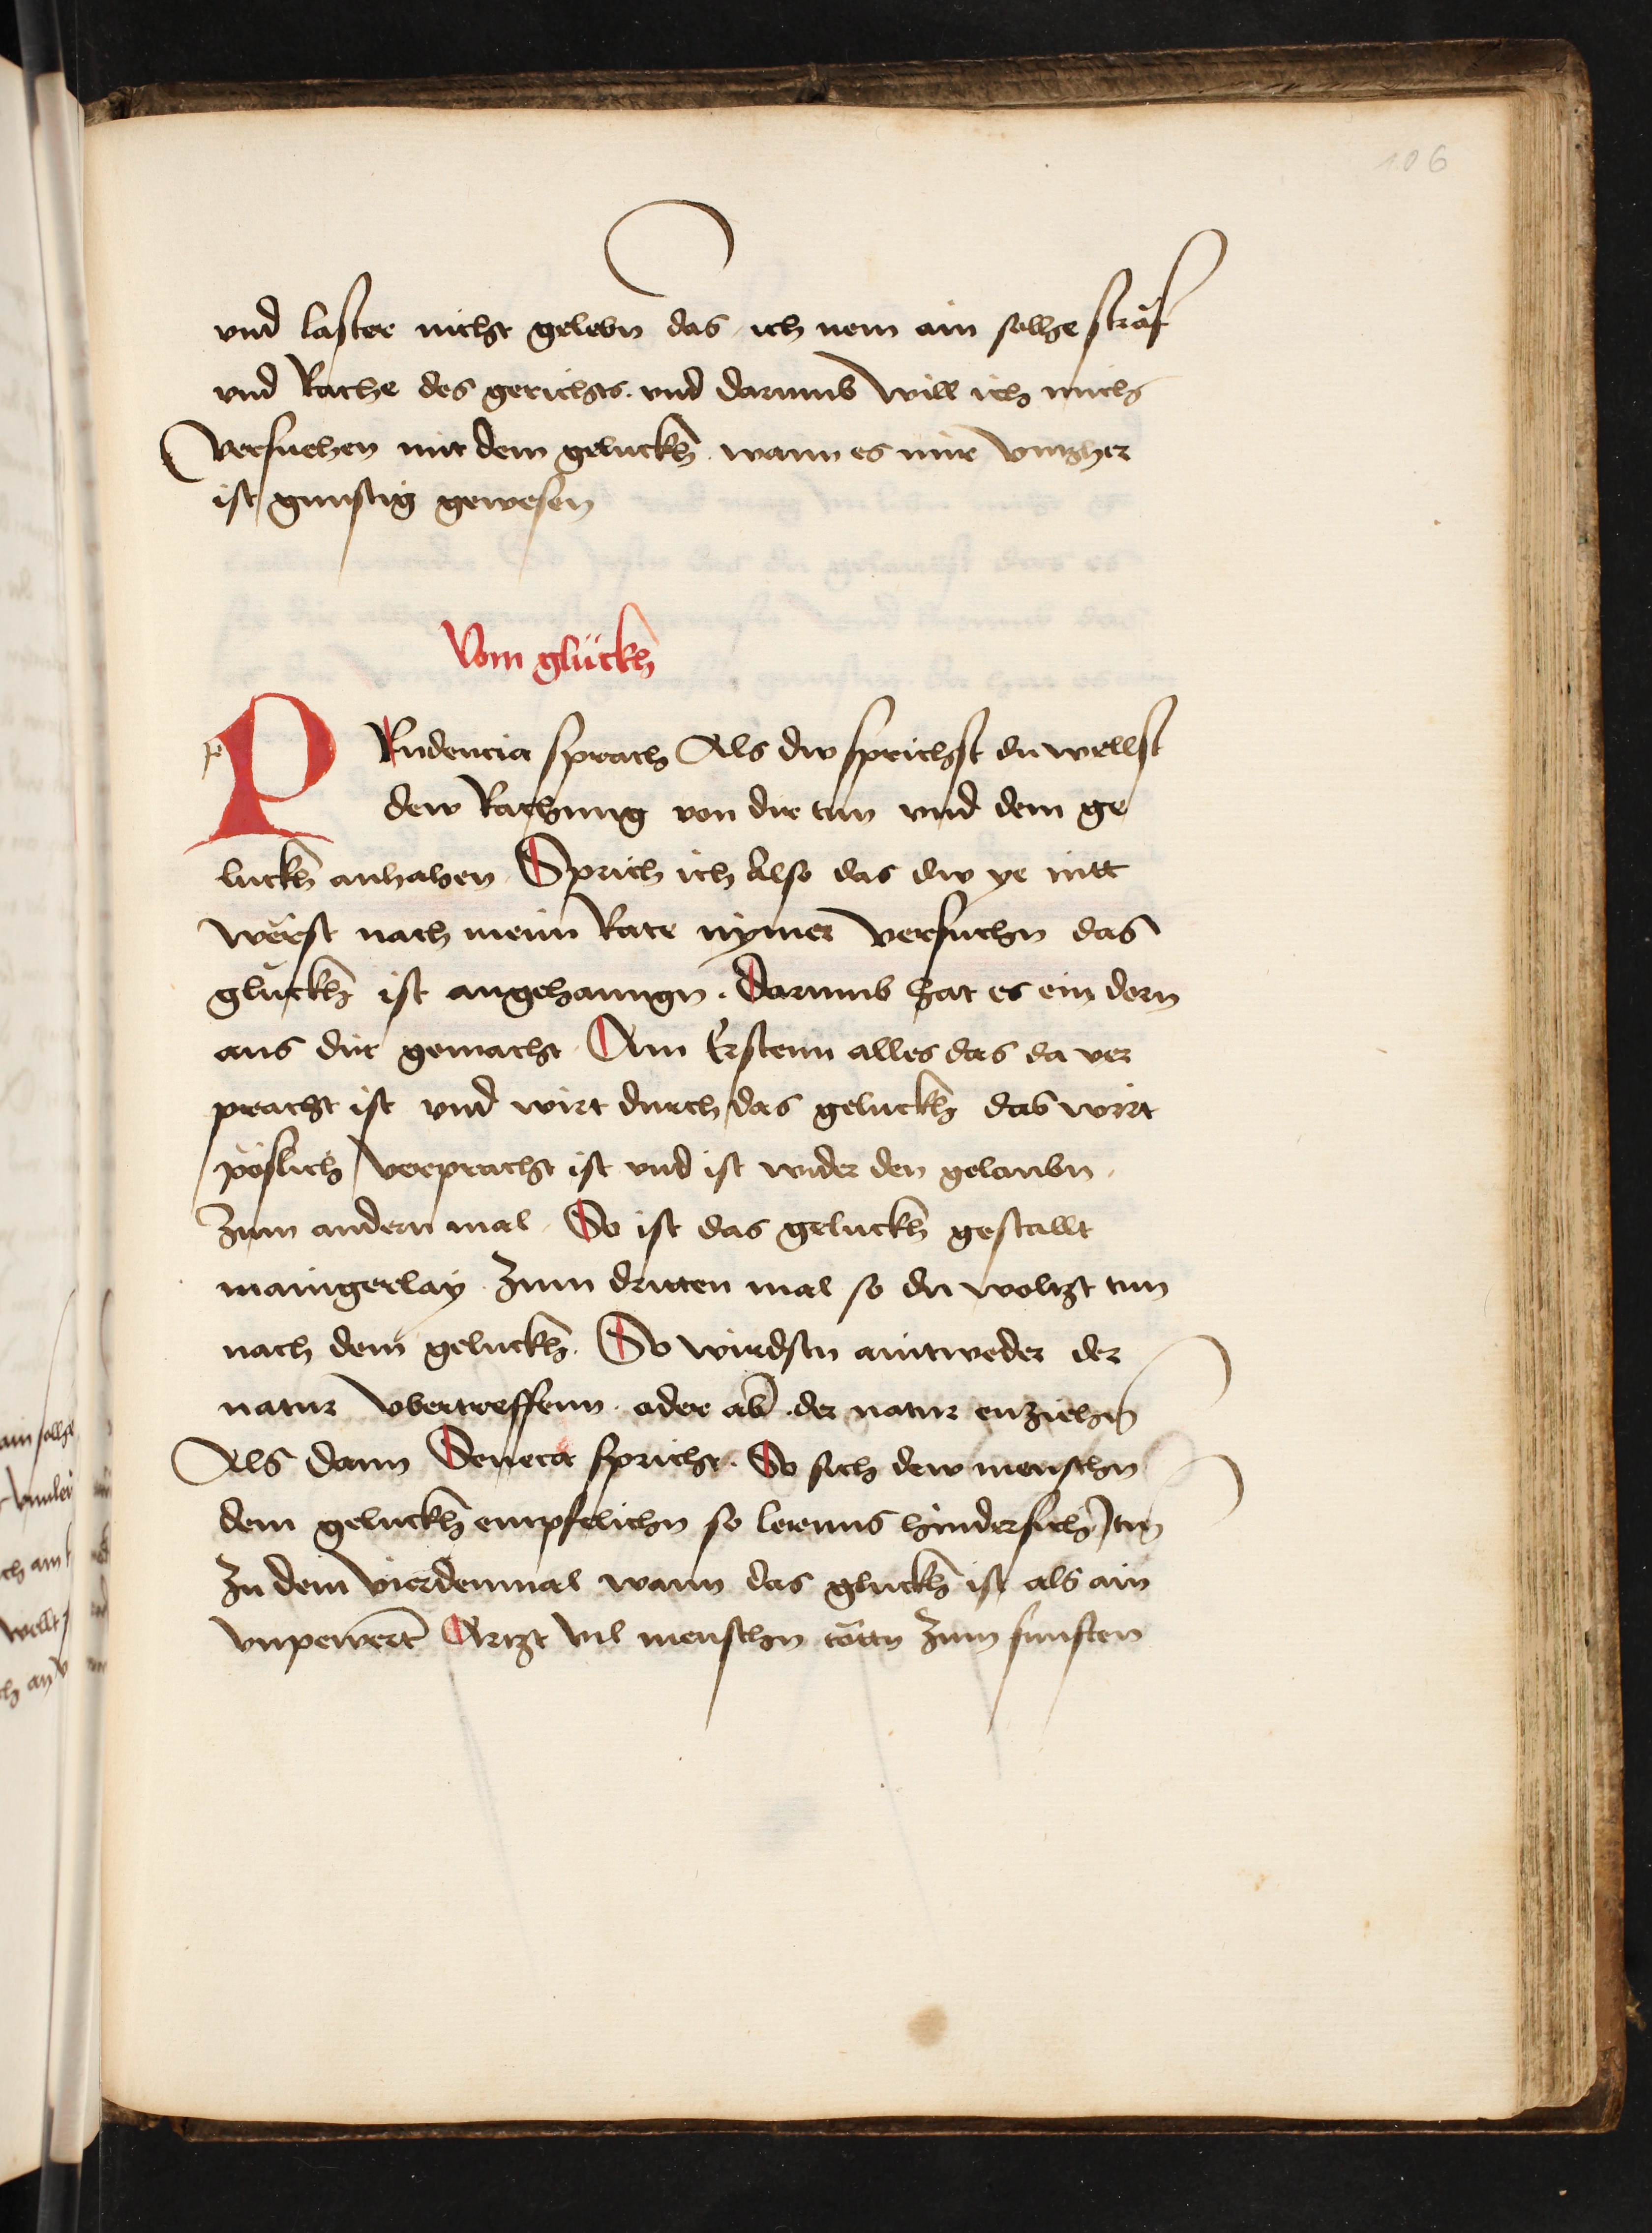 106
vnd laster nicht gelebn das ich nem ain solhe straf
vnd Rache des gerichts. vnd darumb will ich mich
versuchen mit dem geluckh wann es mir vntzher
ist gunstig gewesen
Vom glückh
PRudencia sprach Als dw sprichst du wellst
dew Rachung von dir tun vnd dem ge
luckh anhahen Sprich ich Also das dw ye nitt
werst nach meim Rate nymer versuchn das
gluckh ist angehanngn. Darumb hat es ein dorn
aus dir gemacht Am Erstenn alles das da ver
pracht ist vnd wirt durch das geluckh das wirt
pöslich verpracht ist vnd ist wider den gelaubn.
Zum andern mal So ist das geluckh gestallt
maingerlay Zum dritten mal so du woltzt tun
nach dem geluckh. So wirdstu aintweder der
natur vbertreffenn oder ab der natur enziehn
Als dann Seneca spricht. So sich dew menschn
dem geluckh empfelichn so lerenns hindersich tun
Zu dem vierdenmal wann das gluckh ist als ain
vnpewert Artzt vil menschn tötn Zum funften